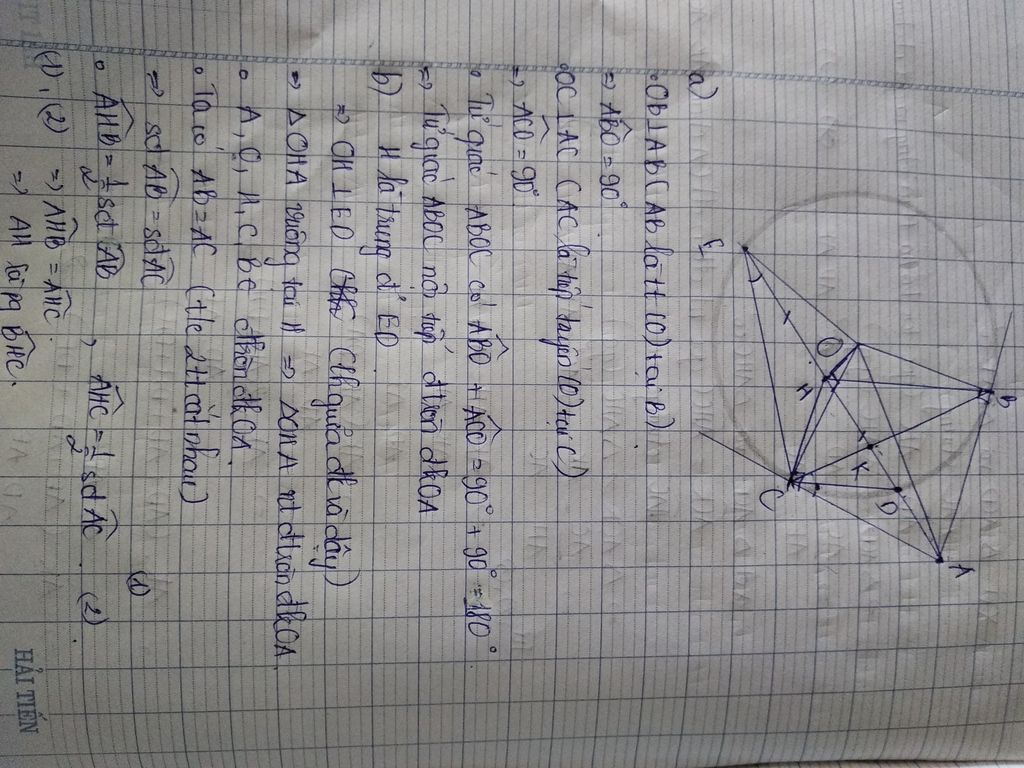 B
A
D
K
H
O
E
C
a)
° OB ⊥ AB (AB là tt (O) tại B)
=> ABO = 90°
° OC ⊥ AC (AC là tiếp tuyến (O) tại C)
=> ACO = 90°
° Tứ giác ABOC có ABO + ACO = 90° + 90° = 180°
=> Tứ giác ABOC nội tiếp đtròn đkOA
b) H là trung đ' ED
=> OH ⊥ ED (lh giữa đk và dây)
=> ΔOHA vuông tại H => ΔOHA nt đtròn đkOA
° A, O, H, C, B ∈ đtròn đkOA
° Ta có AB = AC (t/c 2tt cắt nhau)
=> sđ AB = sđ AC (1)
° AHB = 1/2 sđ AB , AHC = 1/2 sđ AC (2)
(1), (2) => AHB = AHC
=> AH là pg BHC.
HẢI TIẾN